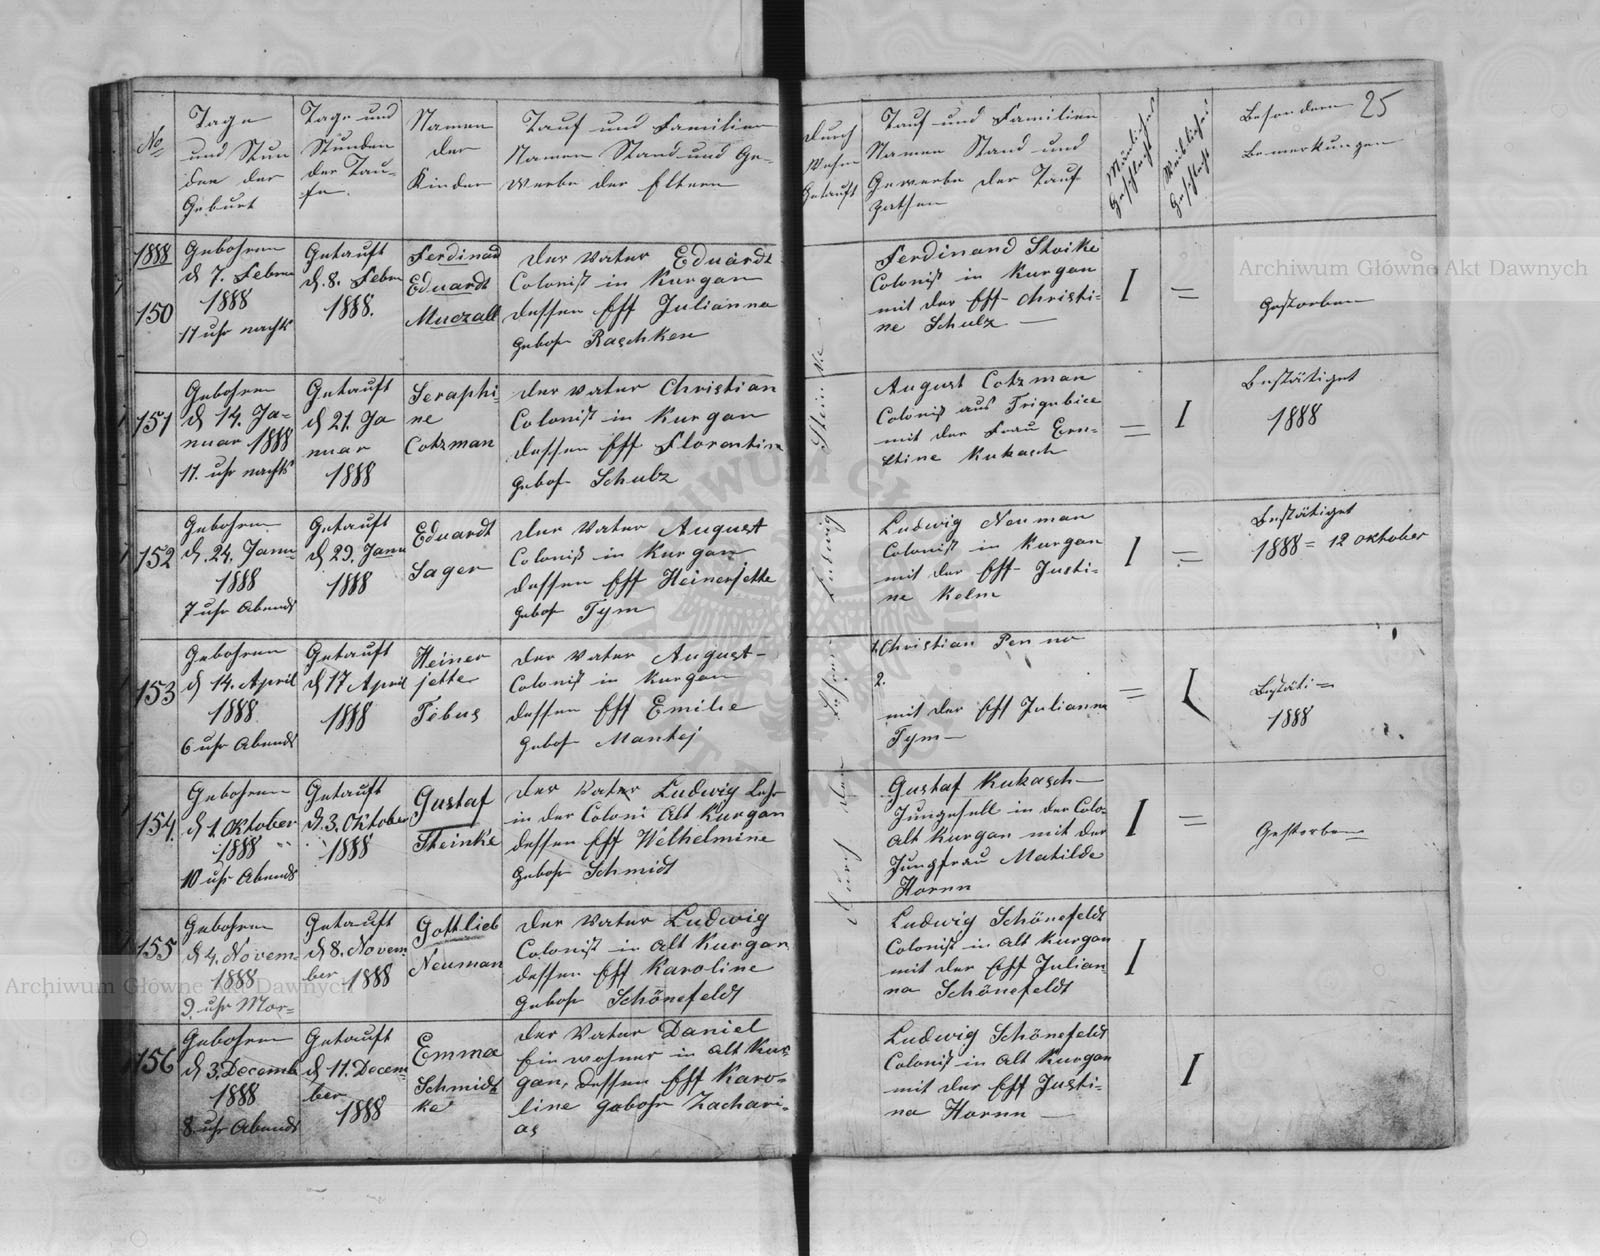 No
Tage
und Stun
den der
Geburt
Tage und
Stunden
der Tau-
fe.
Namen
der
Kinder
Tauf und Familien
Namen Stand und Ge-
werbe der Eltern
Durch
Wehm
Getauft
Tauf und Familien
Namen Stand und
Gewerbe der Tauf
Pathen
Männliches
Geschlecht
Weibliches
Geschlecht
Besondere
Bemerkungen
25
1888
150
Gebohren
d. 7. Febru
1888
11 uhr nachts
Getauft
d. 8. Febru
1888.
Ferdinad
Eduardt
Muczall
Der Vater Eduardt
Colonist in Kurgan
dessen Eff Julianna
gebohr Raschken
Ferdinand Stoike
Colonist in Kurgan
mit der Eff- Christi-
ne Schulz —
I
=
Gestorben
151
Gebohren
d 14. Ja-
nuar 1888
11. uhr nachts
Getauft
d 21. Ja
nuar
1888
Seraphi-
ne
Cotzman
Der Vater Christian
Colonist in Kurgan
dessen Eff Florentin
gebohr Schulz
August Cotzman
Colonist aus Trigubice
mit der Frau Ern-
stine Kukasch
=
I
Bestätiget
1888
152
Gebohren
d. 24. Janu-
1888
7 uhr Abends
Getauft
d 29. Janu
1888
Eduardt
Sager
Der Vater August
Colonist in Kurgan
dessen Eff Heinerjette
gebohr Tym
Ludwig Neuman
Colonist in Kurgan
mit der Eff- Justi-
ne Kelm
I
=
Bestätiget
1888 = 12 oktober
153
Gebohren
d 14. April
1888
6 uhr Abends
Getauft
d 17 April
1888
Heiner
jette
Tebus
Der Vater August-
Colonist in Kurgan
dessen Eff Emilie
gebohr Mantej
1. Christian Penno
2.
mit der Eff Julianna
Tym —
=
I
Bestäti =
1888
154.
Gebohren
d 1. Oktober
1888
10 uhr Abends
Getauft
d. 3. Oktober
1888
Gustaf
Steinke
Der Vater Ludwig Lehr
in der Coloni Alt Kurgan
dessen Eff Wilhelmine
gebohr Schmidt
Gustaf Kukasch —
Junggesell in der Colo-
Alt Kurgan mit der
Jungfrau Matilde
Hornn
I
=
Gestorben
155
Gebohren
d 4. Novem-
1888
9. uhr Mor=
Getauft
d 8. Novem
ber 1888
Gottlieb
Neuman
Der Vater Ludwig
Colonist in Alt Kurgan
dessen Eff Karoline
gebohr Schönefeldt
Ludwig Schönefeldt
Colonist in Alt Kurgan
mit der Eff Julian-
na Schönefeldt
I
156
Gebohren
d 3. Decemb
1888
8. uhr Abends
Getauft
d 11. Decem-
ber
1888
Emma
Schmidt
ke
Der Vater Daniel
Einwohner in Alt Kur
gan, dessen Eff Karo-
line gebohr Zachari-
as
Ludwig Schönefeldt
Colonist in Alt Kurgan
mit der Eff Justi-
na Hornn —
I
Durch den
Ludwig
Steinke
Archiwum Główne Akt Dawnych
Archiwum Główne Akt Dawnych